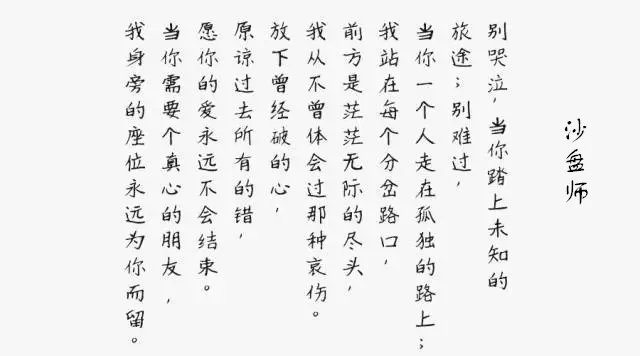 沙盘师
别哭泣，当你踏上未知的
旅途；别难过，
当你一个人走在孤独的路上；
我站在每个分岔路口，
前方是茫茫无际的尽头，
我从不曾体会过那种哀伤。
放下曾经破的心，
原谅过去所有的错，
愿你的爱永远不会结束。
当你需要个真心的朋友，
我身旁的座位永远为你而留。